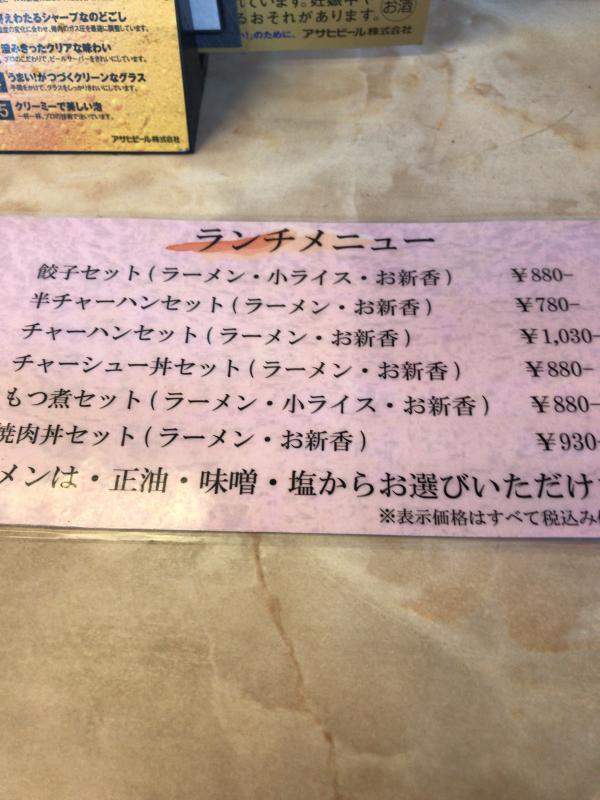 冴えわたるシャープなのどごし
澄みきったクリアな味わい
うまい!がつづくクリーンなグラス
5 クリーミーで美しい泡
アサヒビール株式会社
ています。妊娠中や
るおそれがあります。
お酒
のために、 アサヒビール株式会社
ランチメニュー
餃子セット(ラーメン・小ライス・お新香) ¥880-
半チャーハンセット(ラーメン・お新香) ¥780-
チャーハンセット(ラーメン・お新香) ¥1,030-
チャーシュー丼セット(ラーメン・お新香) ¥880-
もつ煮セット(ラーメン・小ライス・お新香) ¥880-
焼肉丼セット(ラーメン・お新香) ¥930-
メンは・正油・味噌・塩からお選びいただけ
※表示価格はすべて税込み